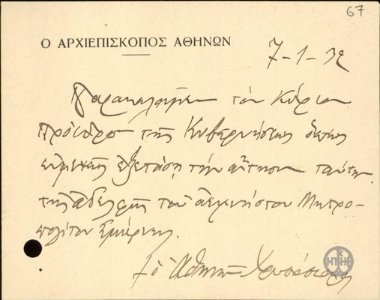 67
Ο ΑΡΧΙΕΠΙΣΚΟΠΟΣ ΑΘΗΝΩΝ
7-1-32
Παρακαλοῦμεν τὸν Κύριον
Πρόεδρον τῆς Κυβερνήσεως ὅπως
εὐμενῶς ἐξετάσῃ τὴν αἴτησιν ταύτην
τῆς ἀδελφῆς τοῦ ἀειμνήστου Μητρο-
πολίτου Σμύρνης.
† ὁ Ἀθηνῶν Χρυσόστομος